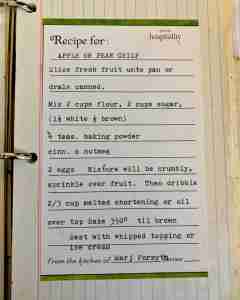 Recipe for:
hospitality
APPLE OR PEAR CRISP
Slice fresh fruit onto pan or
drain canned.
Mix 2 cups flour, 2 cups sugar,
(1½ white ½ brown)
4 teas. baking powder
cinn. & nutmeg
2 eggs Mixture will be crumbly,
sprinkle over fruit. Then dribble
2/3 cup melted shortening or oil
over top Bake 350° til brown
Best with whipped topping or
ice cream
From the kitchen of Marj Forsyth